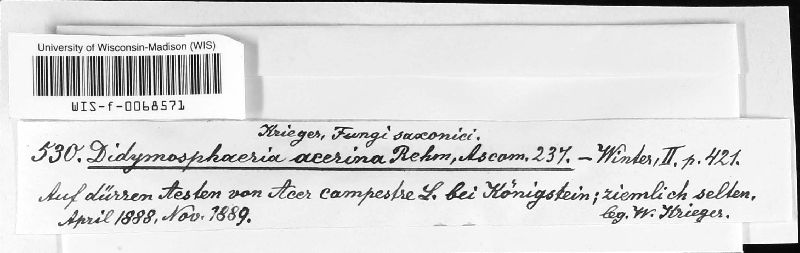 University of Wisconsin-Madison (WIS)
WIS-f-0068571
Krieger, Fungi saxonici.
530. Didymosphaeria acerina Rehm, Ascom. 237. – Winter, II. p. 421.
Auf dürren Aesten von Acer campestre L. bei Königstein; ziemlich selten.
April 1888, Nov. 1889. leg. W. Krieger.